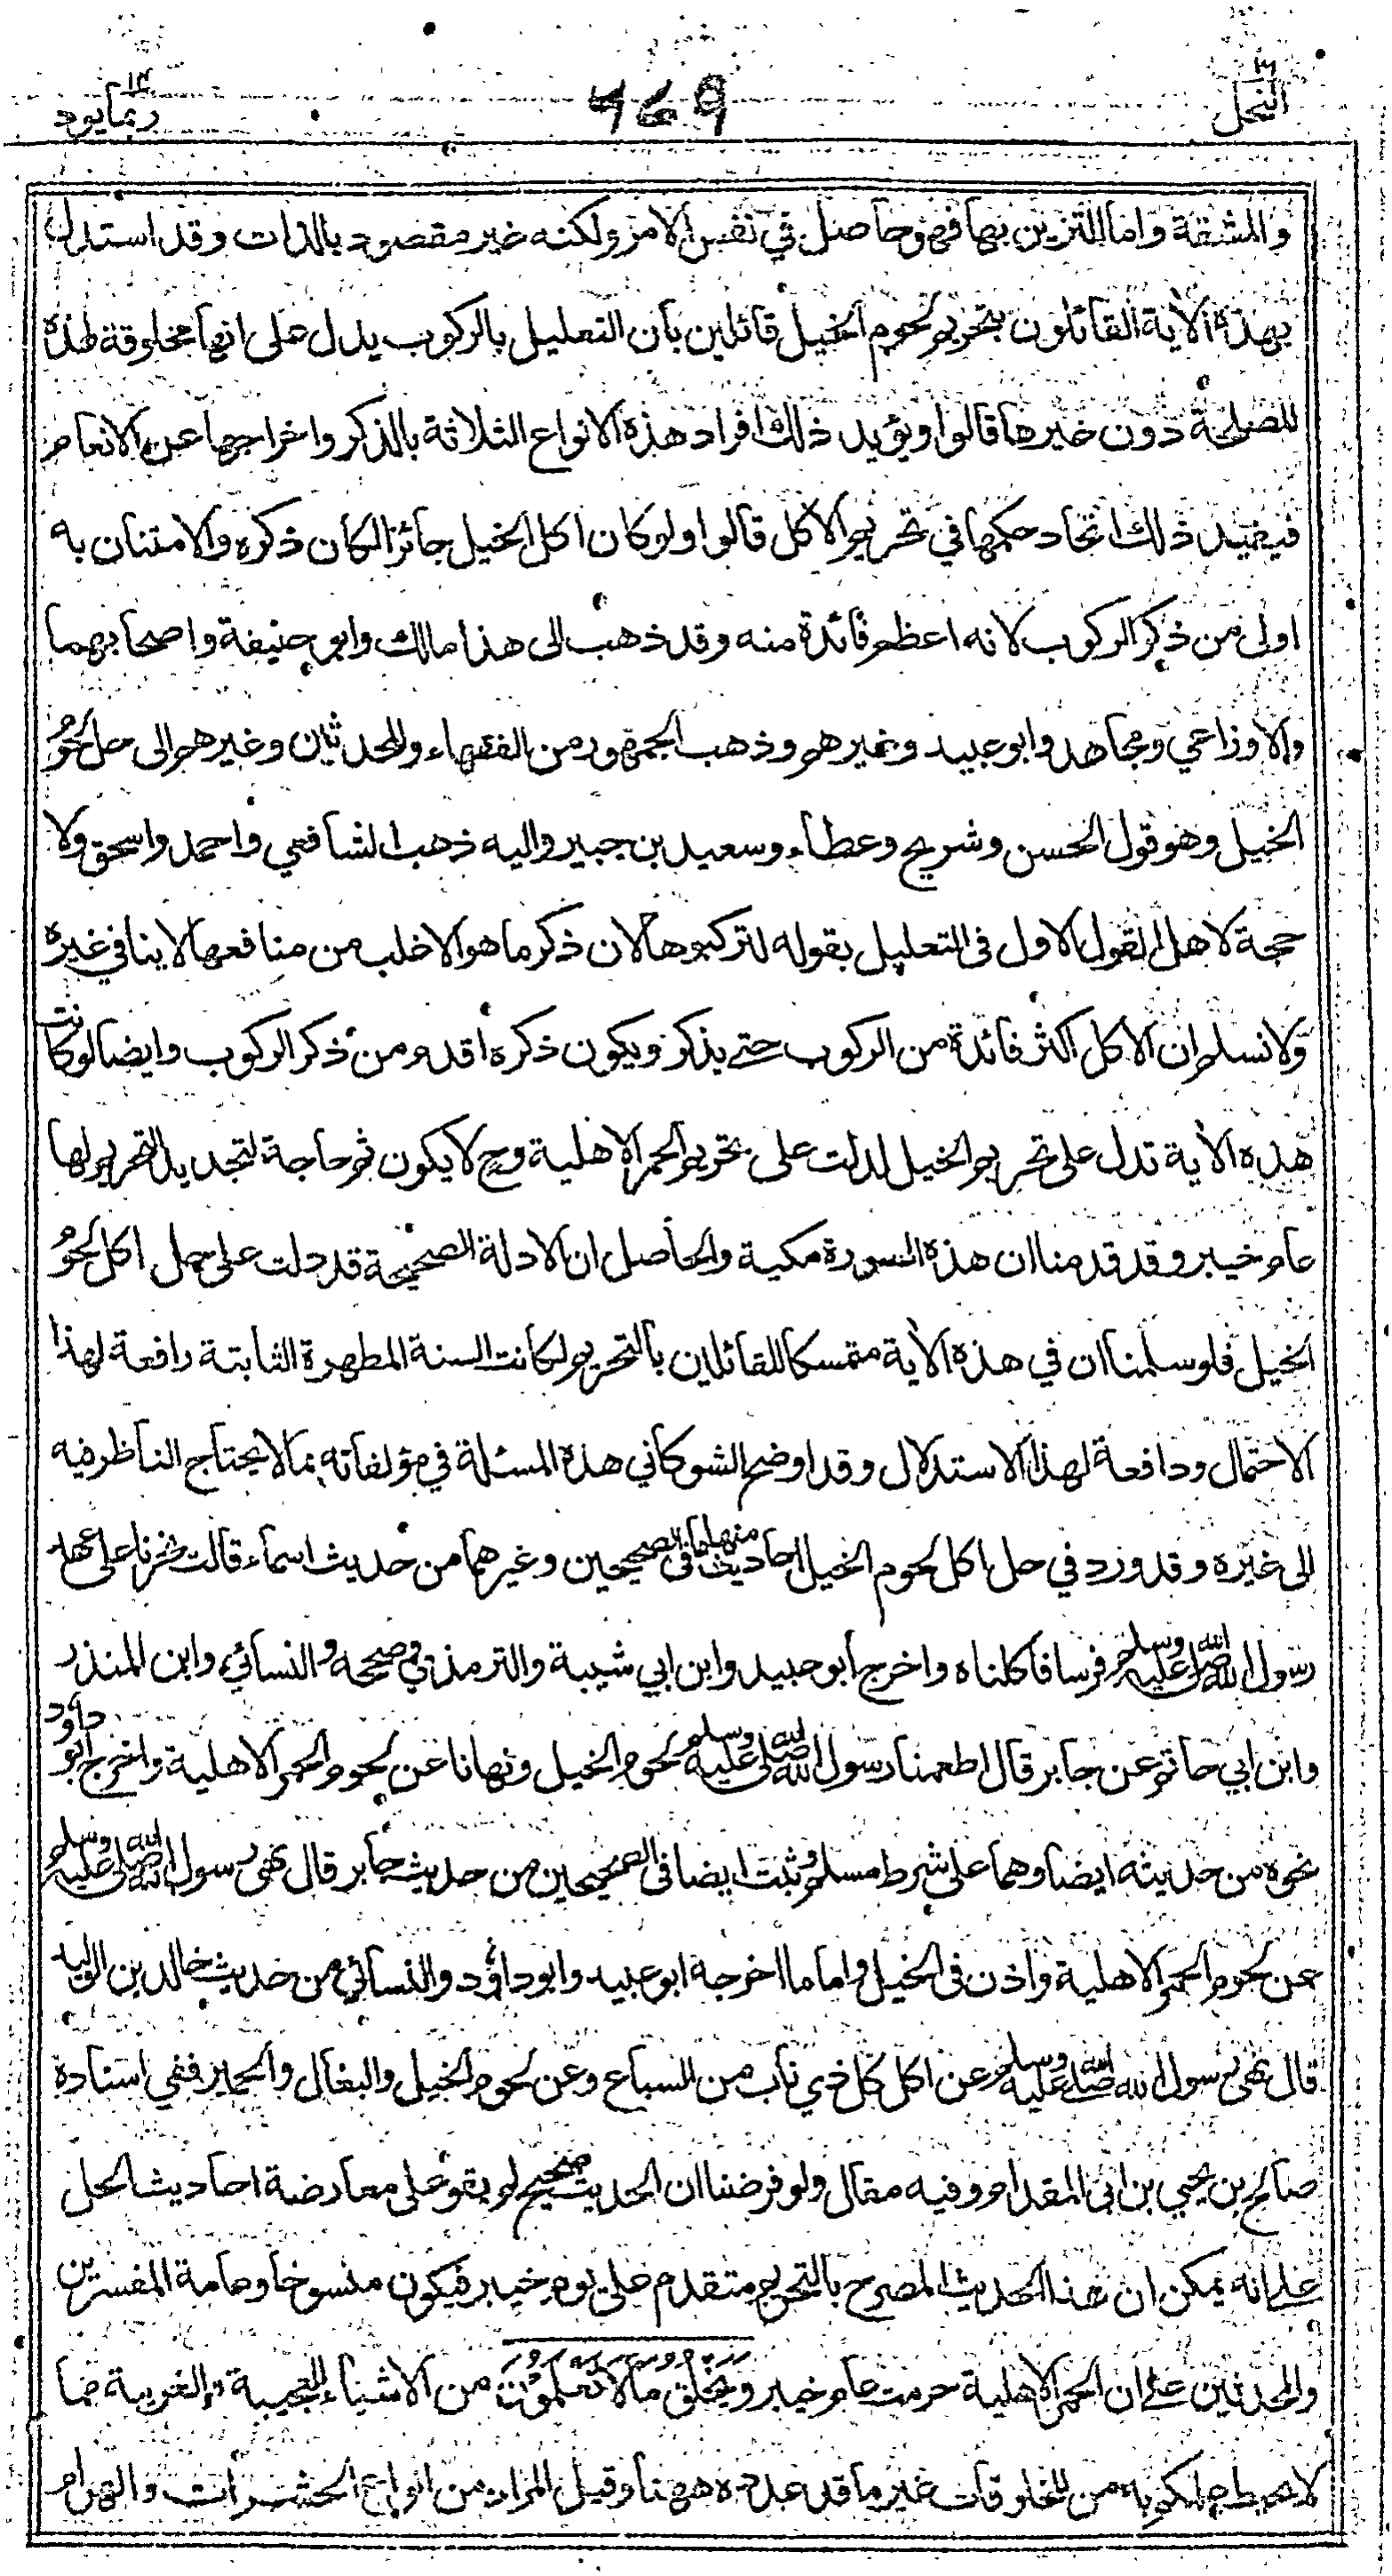 النحل
٦٦٩
ربما يود ١٤
والمشقة واما التزين بها فهو حاصل في نفس الامر ولكنه غير مقصود بالذات وقد استدل
بهذه الآية القائلون بتحريم لحوم الخيل قائلين بأن التعليل بالركوب يدل على انها مخلوقة لهذه
المصلحة دون غيرها قالوا ويؤيد ذلك افراد هذه الانواع الثلاثة بالذكر واخراجها عن الانعام
فيفيد ذلك اتحاد حكمها في تحريم الاكل قالوا ولو كان اكل الخيل جائزا لكان ذكره والامتنان به
اولى من ذكر الركوب لانه اعظم فائدة منه وقد ذهب الى هذا مالك وابو حنيفة واصحابهما
والاوزاعي ومجاهد وابو عبيد وغيرهم وذهب الجمهور من الفقهاء والمحدثين وغيرهم الى حل لحوم
الخيل وهو قول الحسن وشريح وعطاء وسعيد بن جبير واليه ذهب الشافعي واحمد واسحق ولا
حجة لاهل القول الاول في التعليل بقوله لتركبوها لان ذكر ما هو الاغلب من منافعها لا ينافي غيره
ولا نسلم ان الاكل اكثر فائدة من الركوب حتى يذكر ويكون ذكره اقدم من ذكر الركوب وايضا لو كانت
هذه الآية تدل على تحريم الخيل لدلت على تحريم الحمر الاهلية وح لا يكون ثم حاجة لتجديد التحريم لها
عام خيبر وقد قدمنا ان هذه السورة مكية والحاصل ان الادلة الصحيحة قد دلت على حل اكل لحوم
الخيل فلو سلمنا ان في هذه الآية متمسكا للقائلين بالتحريم لكانت السنة المطهرة الثابتة رافعة لهذا
الاحتمال ودافعة لهذا الاستدلال وقد اوضح الشوكاني هذه المسئلة في مؤلفاته بما لا يحتاج الناظر فيه
الى غيره وقد ورد في حل اكل لحوم الخيل احاديث منها ما في الصحيحين وغيرهما من حديث اسماء قالت نحرنا على عهد
رسول الله صلى الله عليه وسلم فرسا فأكلناه واخرج أبو عبيد وابن ابي شيبة والترمذي وصححه والنسائي وابن المنذر
وابن ابي حاتم عن جابر قال اطعمنا رسول الله صلى الله عليه وسلم لحوم الخيل ونهانا عن لحوم الحمر الاهلية واخرج ابو داود
نحوه من حديثه ايضا وهما على شرط مسلم وثبت ايضا في الصحيحين من حديث جابر قال نهى رسول الله صلى الله عليه وسلم
عن لحوم الحمر الاهلية واذن في الخيل واما ما اخرجه ابو عبيد وابو داؤد والنسائي من حديث خالد بن الوليد
قال نهى رسول الله صلى الله عليه وسلم عن اكل كل ذي ناب من السباع وعن لحوم الخيل والبغال والحمير ففي اسناده
صالح بن يحيى بن ابى المقدام وفيه مقال ولو فرضنا ان الحديث صحيح لم يقو على معارضة احاديث الحل
على انه يمكن ان هذا الحديث المصرح بالتحريم متقدم على يوم خيبر فيكون منسوخا وعامة المفسرين
والمحدثين على ان الحمر الاهلية حرمت عام خيبر ويخلق ما لا تعلمون من الاشياء العجيبة والغريبة مما
لا يحيط علمكم به من المخلوقات غير ما قد عدده ههنا وقيل المراد من انواع الحشرات والهوام